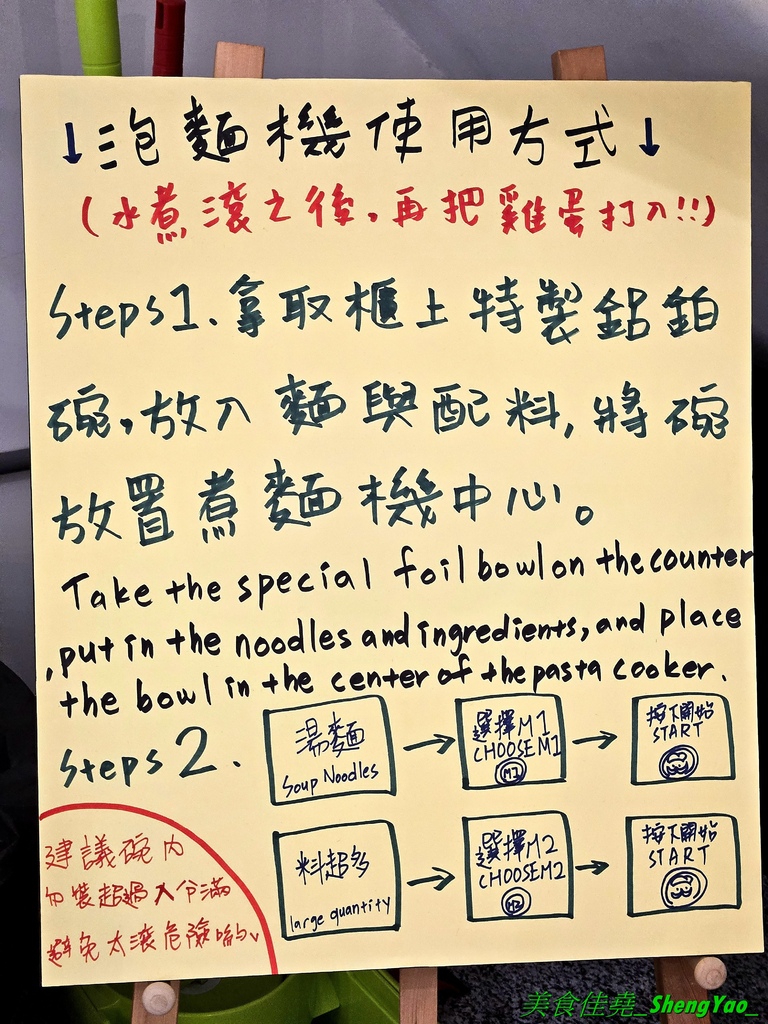 ↓泡麵機使用方式↓
(水煮滾之後,再把雞蛋打入!!)
Steps1.拿取櫃上特製鋁鉑
碗,放入麵與配料,將碗
放置煮麵機中心。
Take the special foil bowl on the counter
,put in the noodles and ingredients, and place
the bowl in the center of the pasta cooker.
Steps 2.
湯麵
Soup Noodles
→
選擇M1
CHOOSE M1
M1
→
按下開始
START
料超多
large quantity
→
選擇M2
CHOOSE M2
M2
→
按下開始
START
建議碗內
勿裝超過八分滿
避免太滾危險喲~
美食佳堯_ShengYao_